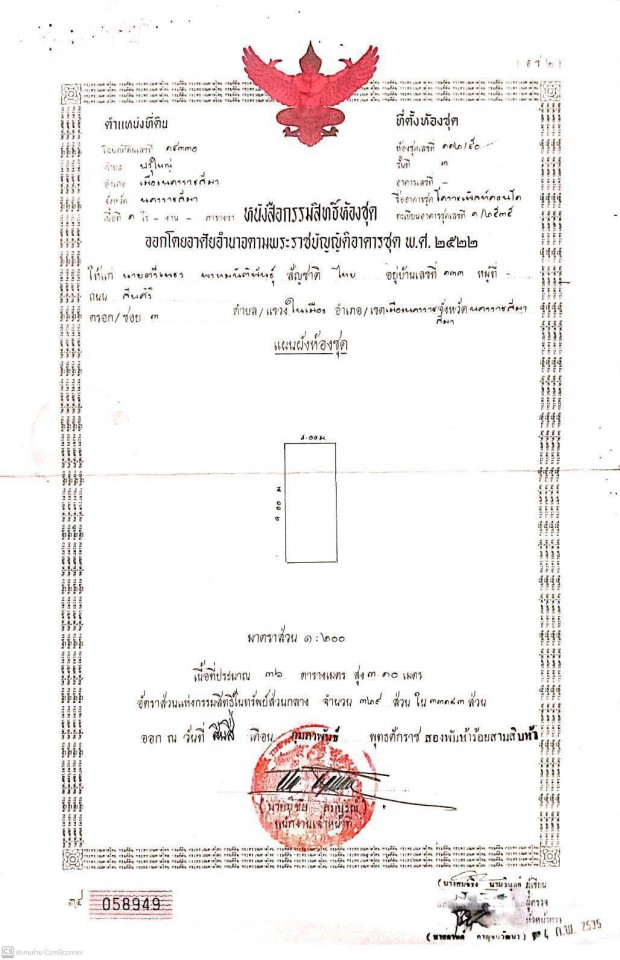 ( อ ช ๒ )
ตำแหน่งที่ดิน
ที่ตั้งห้องชุด
โฉนดที่ดินเลขที่ ๑๕๓๓๐
ห้องชุดเลขที่ ๑๓๒/๕๐
ตำบล ปรุใหญ่
ชั้นที่ ๓
อำเภอ เมืองนครราชสีมา
อาคารเลขที่ -
จังหวัด นครราชสีมา
ชื่ออาคารชุด
เนื้อที่ ๑ ไร่ - งาน - ตารางวา
ทะเบียนอาคารชุดเลขที่ ๑/๒๕๓๕
หนังสือกรรมสิทธิ์ห้องชุด
ออกโดยอาศัยอำนาจตามพระราชบัญญัติอาคารชุด พ.ศ. ๒๕๒๒
ให้แก่ นาย สัญชาติ ไทย อยู่บ้านเลขที่ ๑๓๓ หมู่ที่ -
ถนน สืบศิริ
ตรอก/ซอย ๓ ตำบล/แขวง ในเมือง อำเภอ/เขต เมืองนครราชสีมา จังหวัด นครราชสีมา
แผนผังห้องชุด
๔.๐๐ ม.
๙.๐๐ ม
มาตราส่วน ๑ : ๒๐๐
เนื้อที่ประมาณ ๓๖ ตารางเมตร สูง ๓.๑๐ เมตร
อัตราส่วนแห่งกรรมสิทธิ์ในทรัพย์ส่วนกลาง จำนวน ๓๒๙ ส่วน ใน ๓๓๑๘๓ ส่วน
ออก ณ วันที่ สิบสี่ เดือน กุมภาพันธ์ พุทธศักราช สองพันห้าร้อยสามสิบห้า
พนักงานเจ้าหน้าที่
๓๔ 058949
ผู้เขียน
ผู้ตรวจ
ก.พ. 2535
CS สแกนด้วย CamScanner